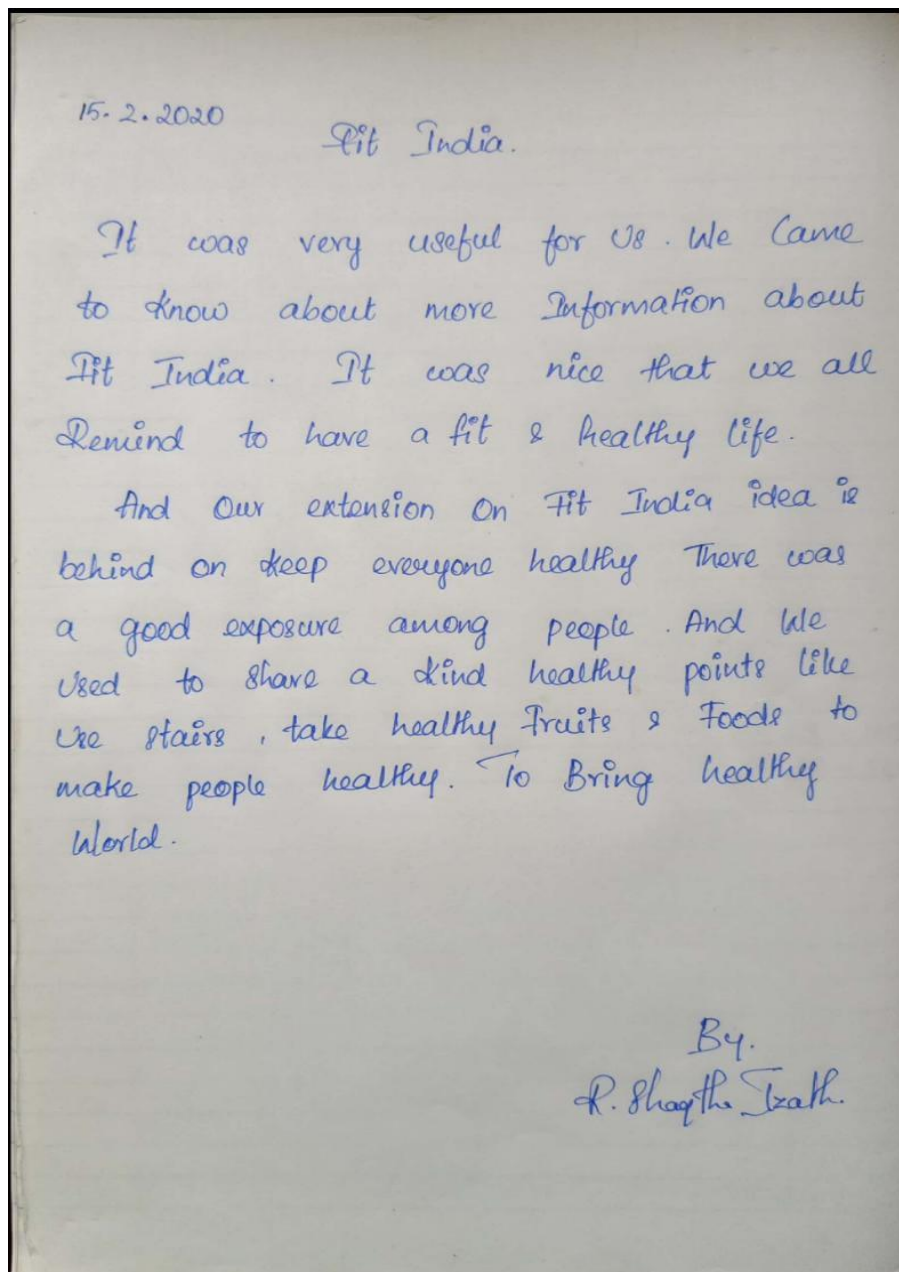 15.2.2020
Fit India.
It was very useful for Us. We Came
to know about more Information about
Fit India. It was nice that we all
Remind to have a fit & healthy life.
And Our extension On Fit India idea is
behind on keep everyone healthy There was
a good exposure among people. And We
Used to share a kind healthy points like
Use stairs, take healthy Fruits & Foods to
make people healthy. To Bring healthy
World.
By.
R.